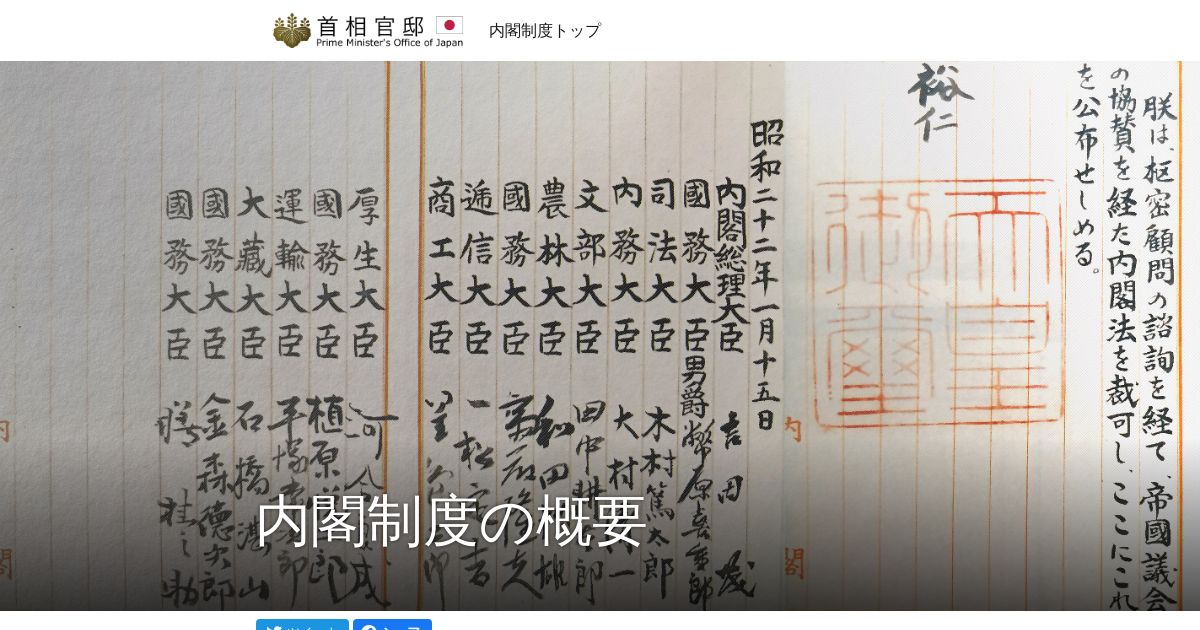 首相官邸
Prime Minister's Office of Japan
内閣制度トップ
朕は、枢密顧問の諮詢を経て、帝國議会
の協賛を経た内閣法を裁可し、ここにこれ
を公布せしめる。
裕仁
天皇
御璽
昭和二十二年一月十五日
内閣総理大臣 吉田茂
國務大臣男爵幣原喜重郎
司法大臣 木村篤太郎
内務大臣 大村一
文部大臣 田中耕郎
農林大臣 和田雄
國務大臣
逓信大臣 一松定吉
商工大臣
厚生大臣 河合成
國務大臣 植原郎
運輸大臣 平塚郎
大藏大臣 石橋湛山
國務大臣 金森德次郎
國務大臣 膳桂之助
内
閣
内
閣
内閣制度の概要